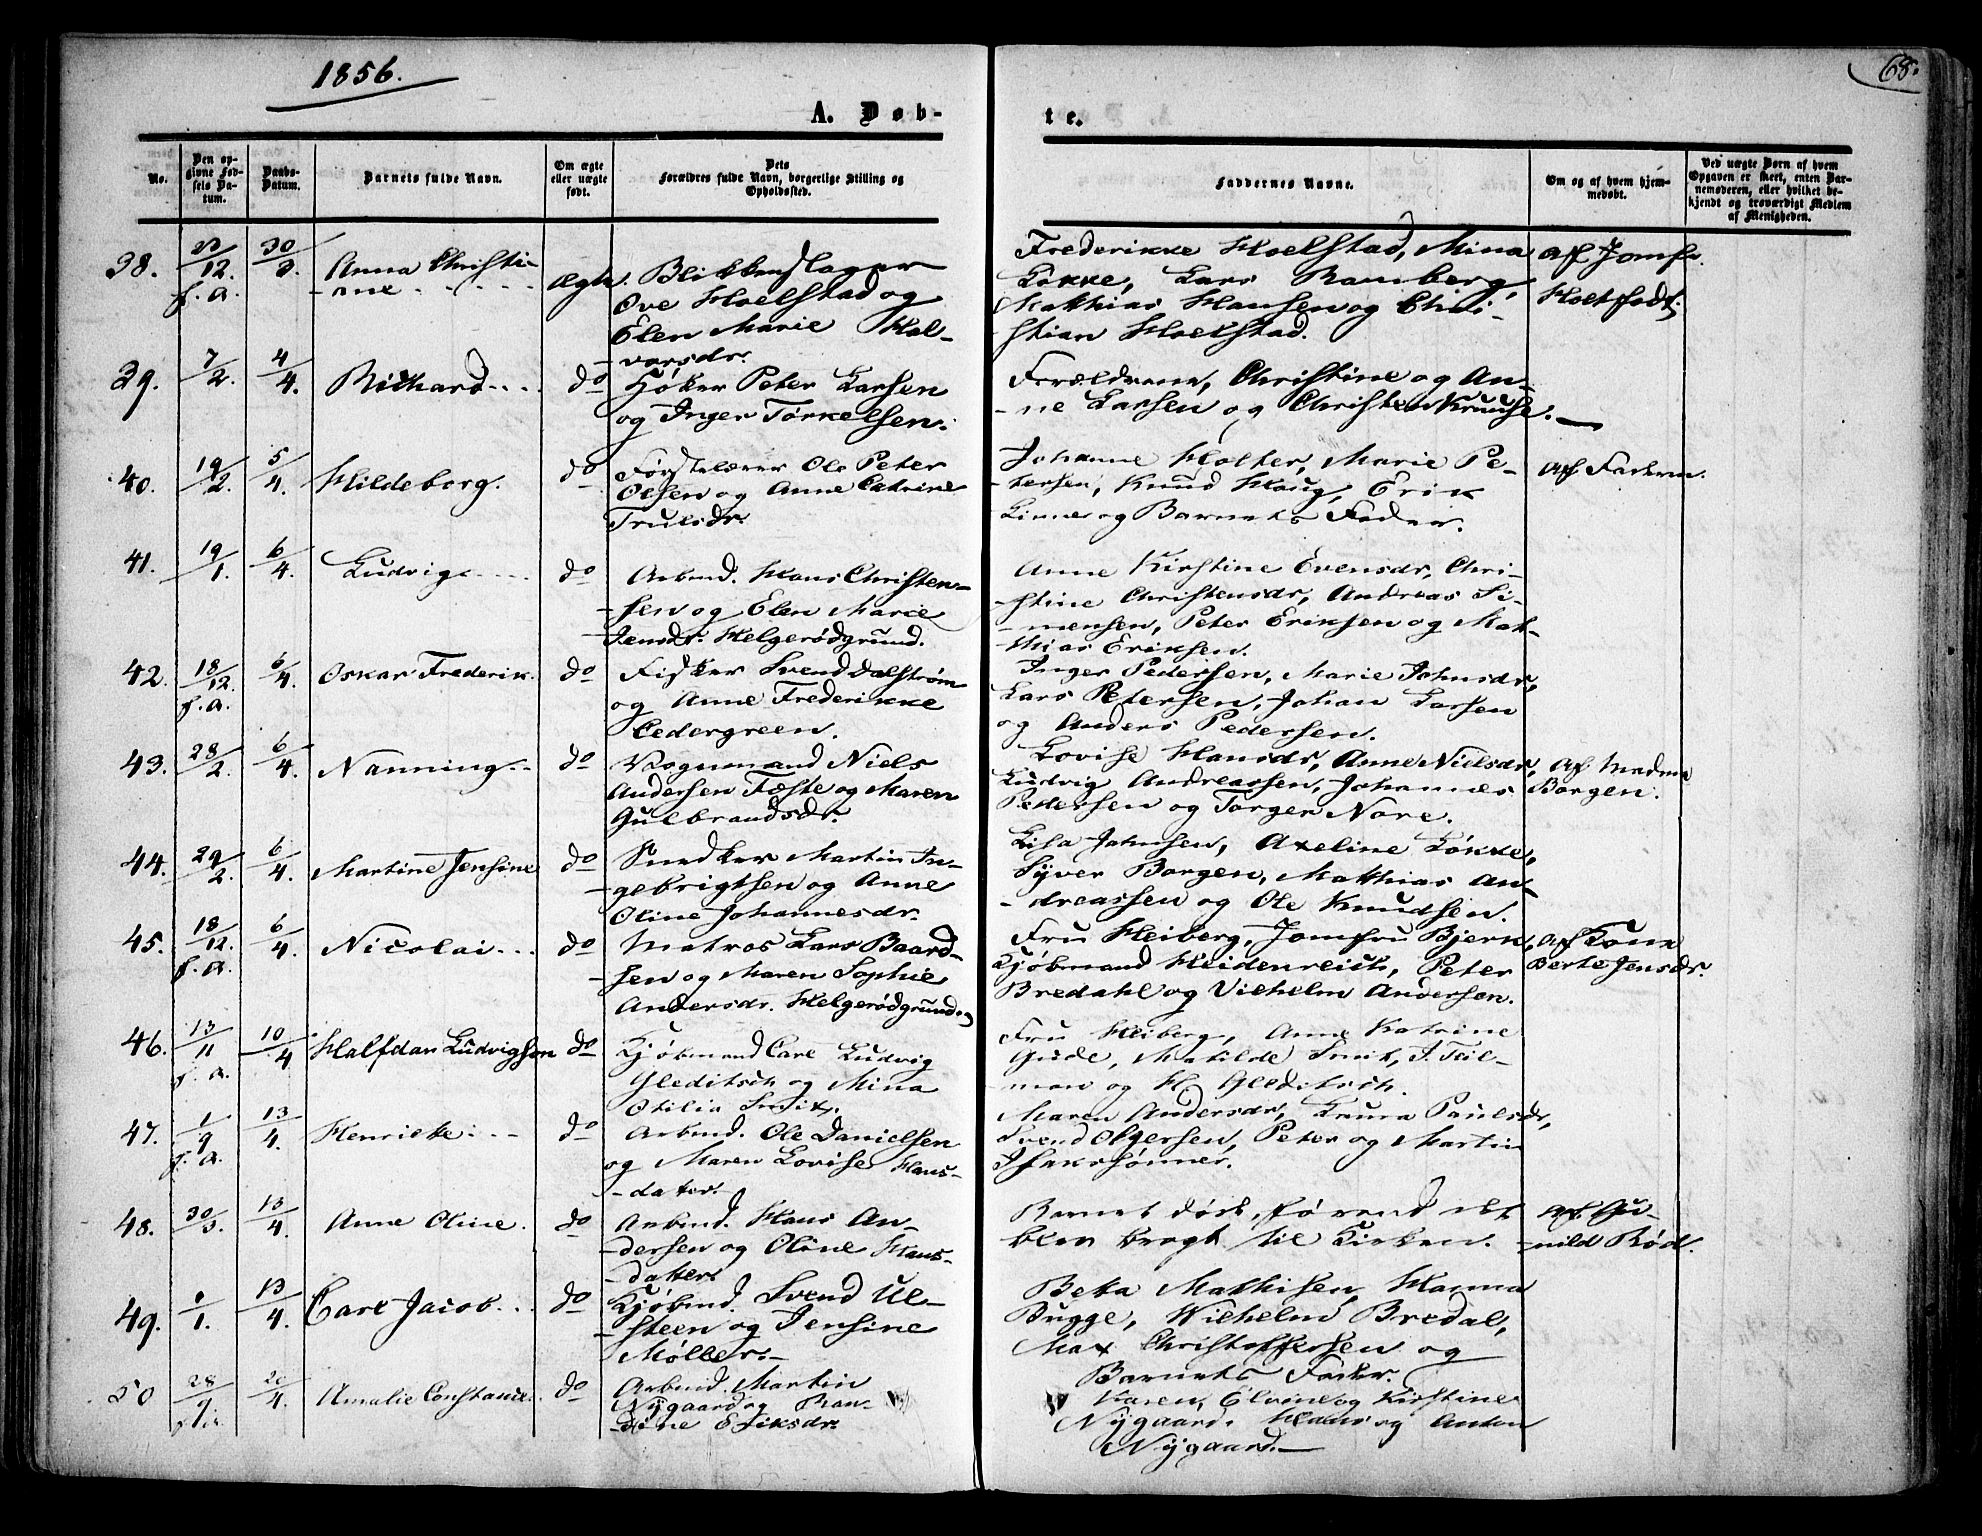 1856.
68.
A. Døb-
te.
No.
Den op-
givne Fød-
sels Da-
tum.
Daabs-
Datum.
Barnets fulde Navn.
Om ægte
eller uægte
født.
Dets
Forældres fulde Navn, borgerlige Stilling og
Opholdssted.
Faddernes Navne.
Om og af hvem hjem-
medøbt.
Ved uægte Børn af hvem
Opgaven er skeet, enten Bar-
nemoderen, eller hvilket be-
kjendt og troværdigt Medlem
af Menigheden.
38.
/12.
f. a.
30/3.
Anna Christi-
-ane
Ægte.
Blikkenslager
Ove Hoelstad og
Elen Marie Hal-
-vorsdr.
Frederikke Hoelstad, Mina
Løkke, Lars Ramberg,
Matthias Hansen og Chri-
stian Hoelstad.
af Jomfr.
Holtfodt.
39.
7/2.
4/4.
Richard
do
Høker Peter Larsen
og Inger Torkelsen.
Forældrene, Christine og An-
-ne Larsen og Christen Knuse.
—
40.
19/2.
5/4.
Hildeborg.
do
Førstelærer Ole Peter
Olsen og Anne Catrine
Trulsdr.
Johanne Holter, Marie Pe-
-tersen, Knud Haug, Erik
Linne og Barnets Fader.
af Faderen.
41.
19/1.
6/4.
Ludvig
do
Arbmd. Hans Christen-
-sen og Elen Marie
Jensdr. Helgerødgrund.
Anne Kirstine Evensdr, Chri-
-stine Christensdr, Andreas Si-
-mensen, Peter Eriksen og Mat-
thias Eriksen.
42.
18/12.
f. a.
6/4.
Oskar Frederik.
do
Fisker Svend Dalstrøm
og Anne Frederikke
Cedergreen.
Inger Pedersen, Marie Johnsdr,
Lars Petersen, Johan Larsen
og Anders Pedersen.
43.
28/2.
6/4.
Nanning
do
Vognmand Niels
Andersen Fæste og Maren
Gulbrandsdr.
Lovise Hansdr, Anne Nielsdr,
Ludvig Andreassen, Johannes
Pedersen og Torger Nore.
af Madme
Borgen.
44.
29/2.
6/4.
Martine Jensine
do
Snedker Martin In-
-gebrigtsen og Anne
Oline Johannesdr.
Lisa Johnsen, Axeline Løkke,
Syver Borgen, Matthias An-
-dreassen og Ole Knudsen.
45.
18/12.
f. a.
6/4.
Nicolai
do
Matros Lars Baard-
sen og Maren Sophie
Andersdr. Helgerødgrunden
Fru Heiberg, Jomfru Bjerk,
Kjøbmand Heidenreich, Peter
Bredahl og Vilhelm Andersen.
af Kone
Berte Jensdr.
46.
13/11
f. a.
10/4
Halfdan Ludvigson
do
Kjøbmand Carl Ludvig
Gleditsch og Mina
Otilia Smith.
Fru Heiberg, Anne Katrine
Gude, Matilde Smit, J. Til-
man og H. Gleditsch.
47.
1/9
f. a.
13/4.
Henriette
do
Arbmd. Ole Danielsen
og Maren Lovise Hans-
-datter.
Maren Andersdr, Laura Paulsdr,
Svend Olgersen, Peter og Martin
Isakssønner.
48.
30/3.
13/4.
Anne Oline.
do
Arbmd. Hans An-
-dersen og Oline Hans-
datter.
Barnet døde, førend det
blev bragt til Kirken.
af Gu-
-nild Rød.
49.
/1.
13/4.
Carl Jacob
do
Kjøbmd. Svend Ul-
-steen og Jensine
Møller.
Beta Mathisen, Hanna
Bugge, Wilhelm Bredal,
Max Christoffersen og
Barnets Fader.
50
28/9
f. a.
20/4.
Amalie Constance
do
Arbmd. Martin
Nygaard og Ran-
-dine Eriksdr.
Karen, Elvine og Kirstine
Nygaard, Hans og Anton
Nygaard.